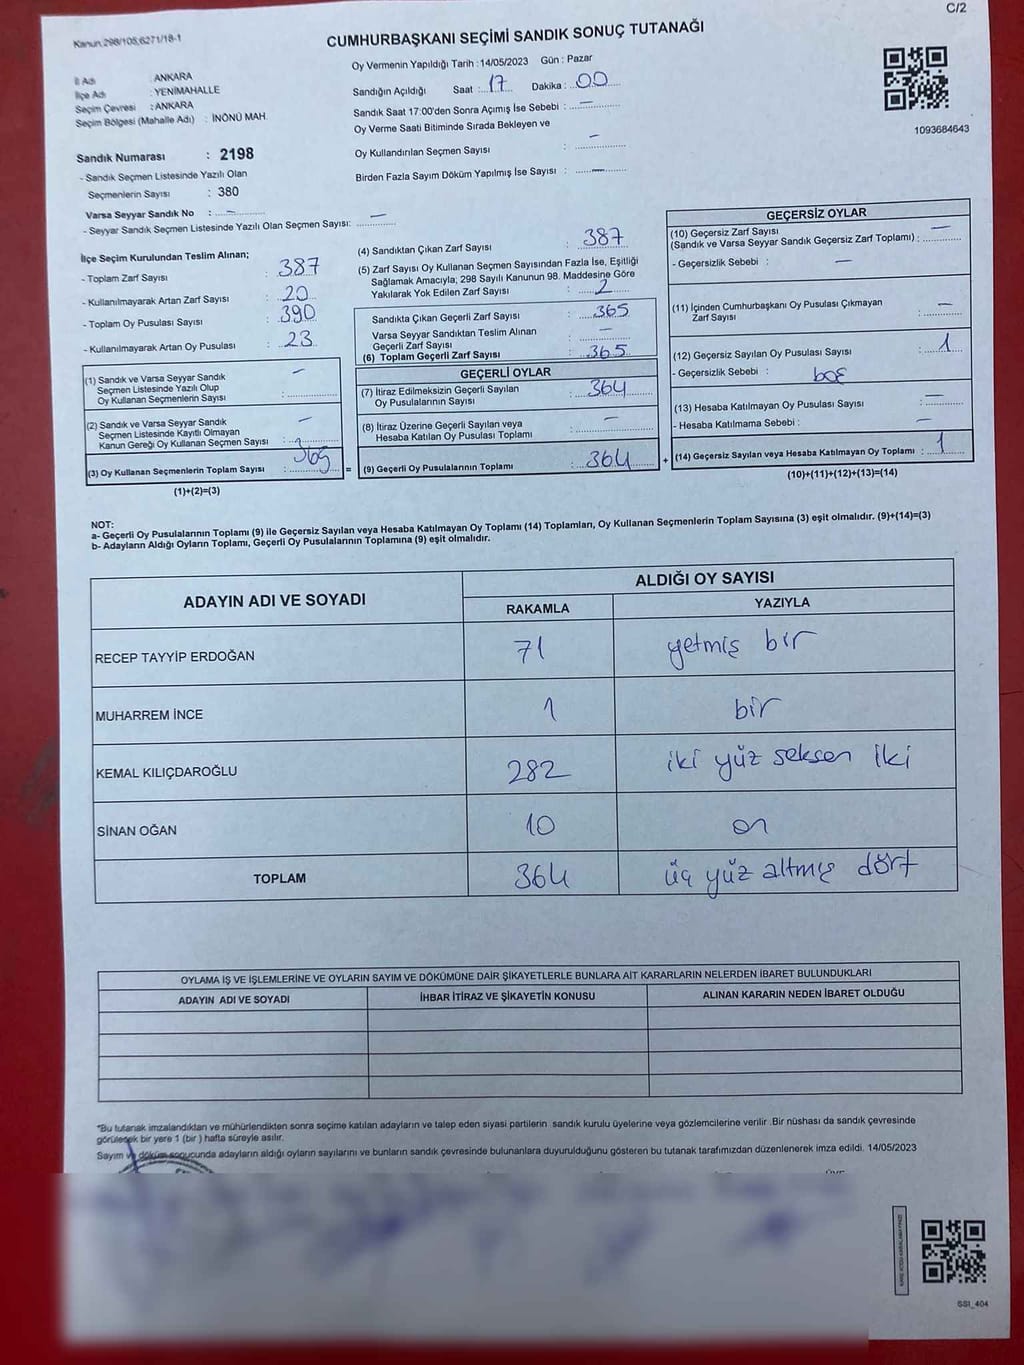 C/2
Kanun,298/105,6271/18-1
CUMHURBAŞKANI SEÇİMİ SANDIK SONUÇ TUTANAĞI
İl Adı : ANKARA
İlçe Adı : YENİMAHALLE
Seçim Çevresi : ANKARA
Seçim Bölgesi (Mahalle Adı) : İNÖNÜ MAH.
Sandık Numarası : 2198
- Sandık Seçmen Listesinde Yazılı Olan
Seçmenlerin Sayısı : 380
Varsa Seyyar Sandık No : —
- Seyyar Sandık Seçmen Listesinde Yazılı Olan Seçmen Sayısı: —
Oy Vermenin Yapıldığı Tarih : 14/05/2023 Gün : Pazar
Sandığın Açıldığı Saat : 17 Dakika : 00
Sandık Saat 17:00'den Sonra Açımış İse Sebebi : —
Oy Verme Saati Bitiminde Sırada Bekleyen ve
Oy Kullandırılan Seçmen Sayısı : —
Birden Fazla Sayım Döküm Yapılmış İse Sayısı : —
1093684643
İlçe Seçim Kurulundan Teslim Alınan;
- Toplam Zarf Sayısı : 387
- Kullanılmayarak Artan Zarf Sayısı : 20
- Toplam Oy Pusulası Sayısı : 390
- Kullanılmayarak Artan Oy Pusulası : 23
(1) Sandık ve Varsa Seyyar Sandık
Seçmen Listesinde Yazılı Olup
Oy Kullanan Seçmenlerin Sayısı : —
(2) Sandık ve Varsa Seyyar Sandık
Seçmen Listesinde Kayıtlı Olmayan
Kanun Gereği Oy Kullanan Seçmen Sayısı : —
(3) Oy Kullanan Seçmenlerin Toplam Sayısı : 365 =
(1)+(2)=(3)
(4) Sandıktan Çıkan Zarf Sayısı : 387
(5) Zarf Sayısı Oy Kullanan Seçmen Sayısından Fazla İse, Eşitliği
Sağlamak Amacıyla; 298 Sayılı Kanunun 98. Maddesine Göre
Yakılarak Yok Edilen Zarf Sayısı : 2
Sandıkta Çıkan Geçerli Zarf Sayısı : 365
Varsa Seyyar Sandıktan Teslim Alınan
Geçerli Zarf Sayısı : —
(6) Toplam Geçerli Zarf Sayısı : 365
GEÇERLİ OYLAR
(7) İtiraz Edilmeksizin Geçerli Sayılan
Oy Pusulalarının Sayısı : 364
(8) İtiraz Üzerine Geçerli Sayılan veya
Hesaba Katılan Oy Pusulası Toplamı : —
(9) Geçerli Oy Pusulalarının Toplamı : 364 +
GEÇERSİZ OYLAR
(10) Geçersiz Zarf Sayısı
(Sandık ve Varsa Seyyar Sandık Geçersiz Zarf Toplamı) : —
- Geçersizlik Sebebi : —
(11) İçinden Cumhurbaşkanı Oy Pusulası Çıkmayan
Zarf Sayısı : —
(12) Geçersiz Sayılan Oy Pusulası Sayısı : 1
- Geçersizlik Sebebi : boş
(13) Hesaba Katılmayan Oy Pusulası Sayısı : —
- Hesaba Katılmama Sebebi : —
(14) Geçersiz Sayılan veya Hesaba Katılmayan Oy Toplamı : 1
(10)+(11)+(12)+(13)=(14)
NOT:
a- Geçerli Oy Pusulalarının Toplamı (9) ile Geçersiz Sayılan veya Hesaba Katılmayan Oy Toplamı (14) Toplamları, Oy Kullanan Seçmenlerin Toplam Sayısına (3) eşit olmalıdır. (9)+(14)=(3)
b- Adayların Aldığı Oyların Toplamı, Geçerli Oy Pusulalarının Toplamına (9) eşit olmalıdır.
ADAYIN ADI VE SOYADI ALDIĞI OY SAYISI
RAKAMLA YAZIYLA
RECEP TAYYİP ERDOĞAN 71 yetmiş bir
MUHARREM İNCE 1 bir
KEMAL KILIÇDAROĞLU 282 iki yüz seksen iki
SİNAN OĞAN 10 on
TOPLAM 364 üç yüz altmış dört
OYLAMA İŞ VE İŞLEMLERİNE VE OYLARIN SAYIM VE DÖKÜMÜNE DAİR ŞİKAYETLERLE BUNLARA AİT KARARLARIN NELERDEN İBARET BULUNDUKLARI
ADAYIN ADI VE SOYADI İHBAR İTİRAZ VE ŞİKAYETİN KONUSU ALINAN KARARIN NEDEN İBARET OLDUĞU
*Bu tutanak imzalandıktan ve mühürlendikten sonra seçime katılan adayların ve talep eden siyasi partilerin sandık kurulu üyelerine veya gözlemcilerine verilir .Bir nüshası da sandık çevresinde
görülecek bir yere 1 (bir ) hafta süreyle asılır.
Sayım ve döküm sonucunda adayların aldığı oyların sayılarını ve bunların sandık çevresinde bulunanlara duyurulduğunu gösteren bu tutanak tarafımızdan düzenlenerek imza edildi. 14/05/2023
SSI_404